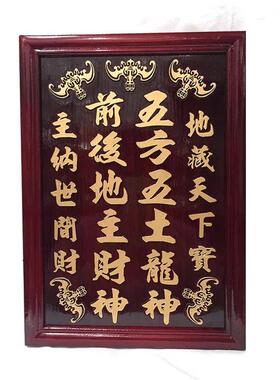 地藏天下寶
五方五土龍神
前後地主財神
主納世間財